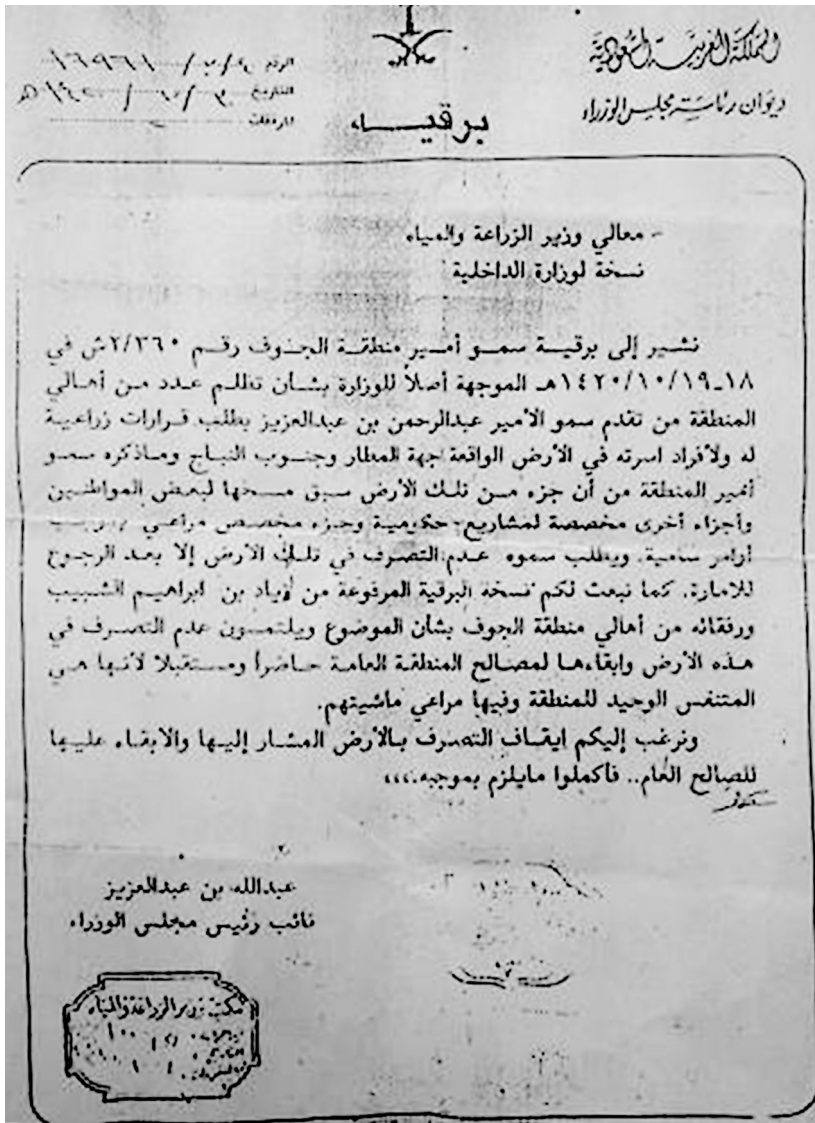 المملكة العربية السعودية
ديوان رئاسة مجلس الوزراء
برقيه
الرقم
التاريخ
المرفقات
- معالي وزير الزراعة والمياه
نسخة لوزارة الداخلية
نشير إلى برقية سمو أمير منطقة الجوف رقم ٢/٣٦٠ش في
١٨ـ١٤٢٠/١٠/١٩هـ الموجهة أصلاً للوزارة بشأن تظلم عدد من أهالي
المنطقة من تقدم سمو الأمير عبدالرحمن بن عبدالعزيز بطلب قرارات زراعية
له ولأفراد اسرته في الأرض الواقعة جهة المطار وجنوب النباج وماذكره سمو
أمير المنطقة من أن جزء من تلك الأرض سبق منحها لبعض المواطنين
وأجزاء أخرى مخصصة لمشاريع حكومية وجزء مخصص مراعي
أوامر سامية. ويطلب سموه عدم التصرف في تلك الأرض إلا بعد الرجوع
للامارة. كما نبعث لكم نسخة البرقية المرفوعة من زياد بن ابراهيم الشبيب
ورفقائه من أهالي منطقة الجوف بشأن الموضوع ويلتمسون عدم التصرف في
هذه الأرض وابقاءها لمصالح المنطقة العامة حاضراً ومستقبلا لأنها هي
المتنفس الوحيد للمنطقة وفيها مراعي ماشيتهم.
ونرغب إليكم ايقاف التصرف بالأرض المشار إليها والابقاء عليها
للصالح العام.. فأكملوا مايلزم بموجبه.،،،
عبدالله بن عبدالعزيز
نائب رئيس مجلس الوزراء
مكتب وزير الزراعة والمياه